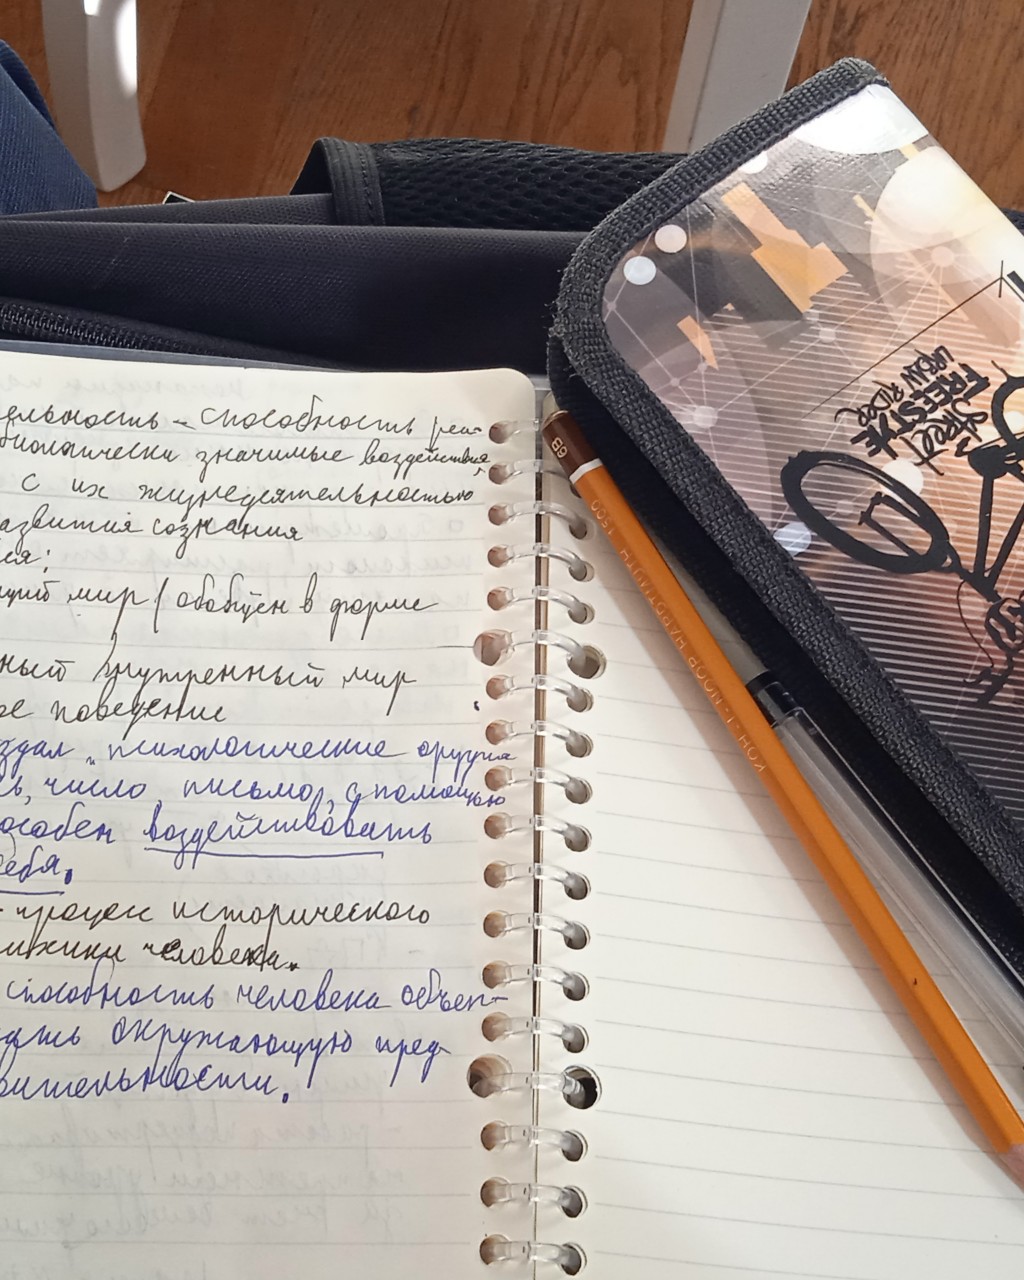 ельность - способность реа-
биологически значимые воздействия,
с их жизнедеятельностью
азвития сознания
ся:
щий мир / обобщён в форме
ный внутренный мир
ое поведение
здал "психологические орудия
ь, число письмо, с помощью
особен воздействовать
себя.
- процесс исторического
психики человека.
способность человека объек-
дать окружающую пред-
вительности.
6B
KOH-I-NOOR HARDTMUTH 1500
Street
FREESTYLE
URBAN RIDER